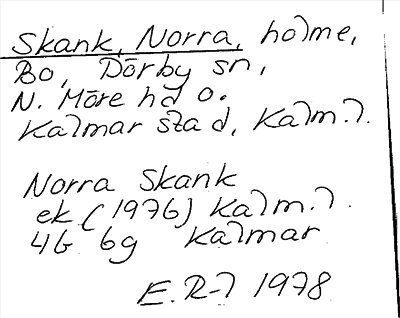 Skank, Norra, holme,
Bo, Dörby sn,
N. Möre hd o.
Kalmar stad, Kalm.l.
Norra Skank
ek (1976) Kalm.l.
4G 6g Kalmar
E.R-l 1978